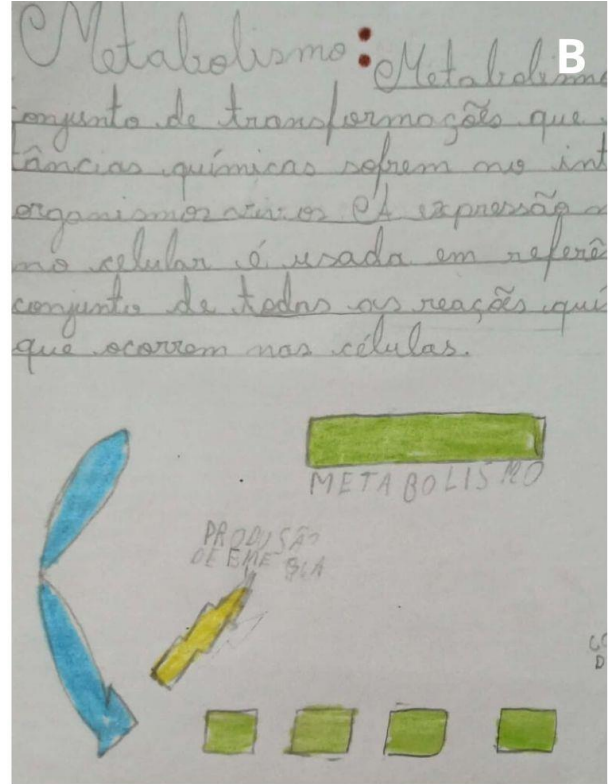 Metabolismo: Metabolismo
B
onjunto de transformações que
tâncias químicas sofrem no int
organismos vivos A expressão
mo celular é usada em referê
conjunto de todas as reações quí
que ocorrem nas células.
METABOLISMO
PRODUSÃO
DE
D